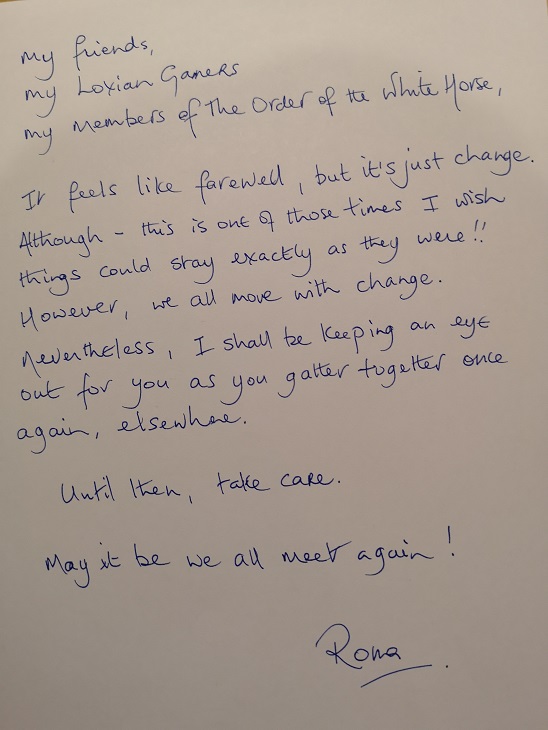 My friends,
my Loxian Gamers
my Members of The Order of the White Horse,
It feels like farewell, but it's just change.
Although - this is one of those times I wish
things could stay exactly as they were!!
However, we all move with change.
Nevertheless, I shall be keeping an eye
out for you as you gather together once
again, elsewhere.
Until then, take care.
May it be we all meet again!
Roma.